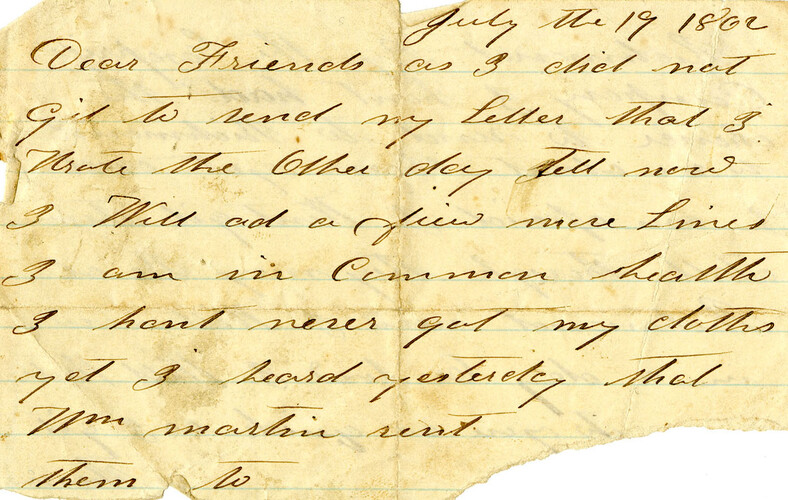 July the 19 1862
Dear Friends as I did not
Git to send my Letter that I
Wrote the Other day Tell now
I Will ad a fiew more Lines
I am in Common health
I hant never got my cloths
yet I heard yesterday that
Wm martin sent
them to